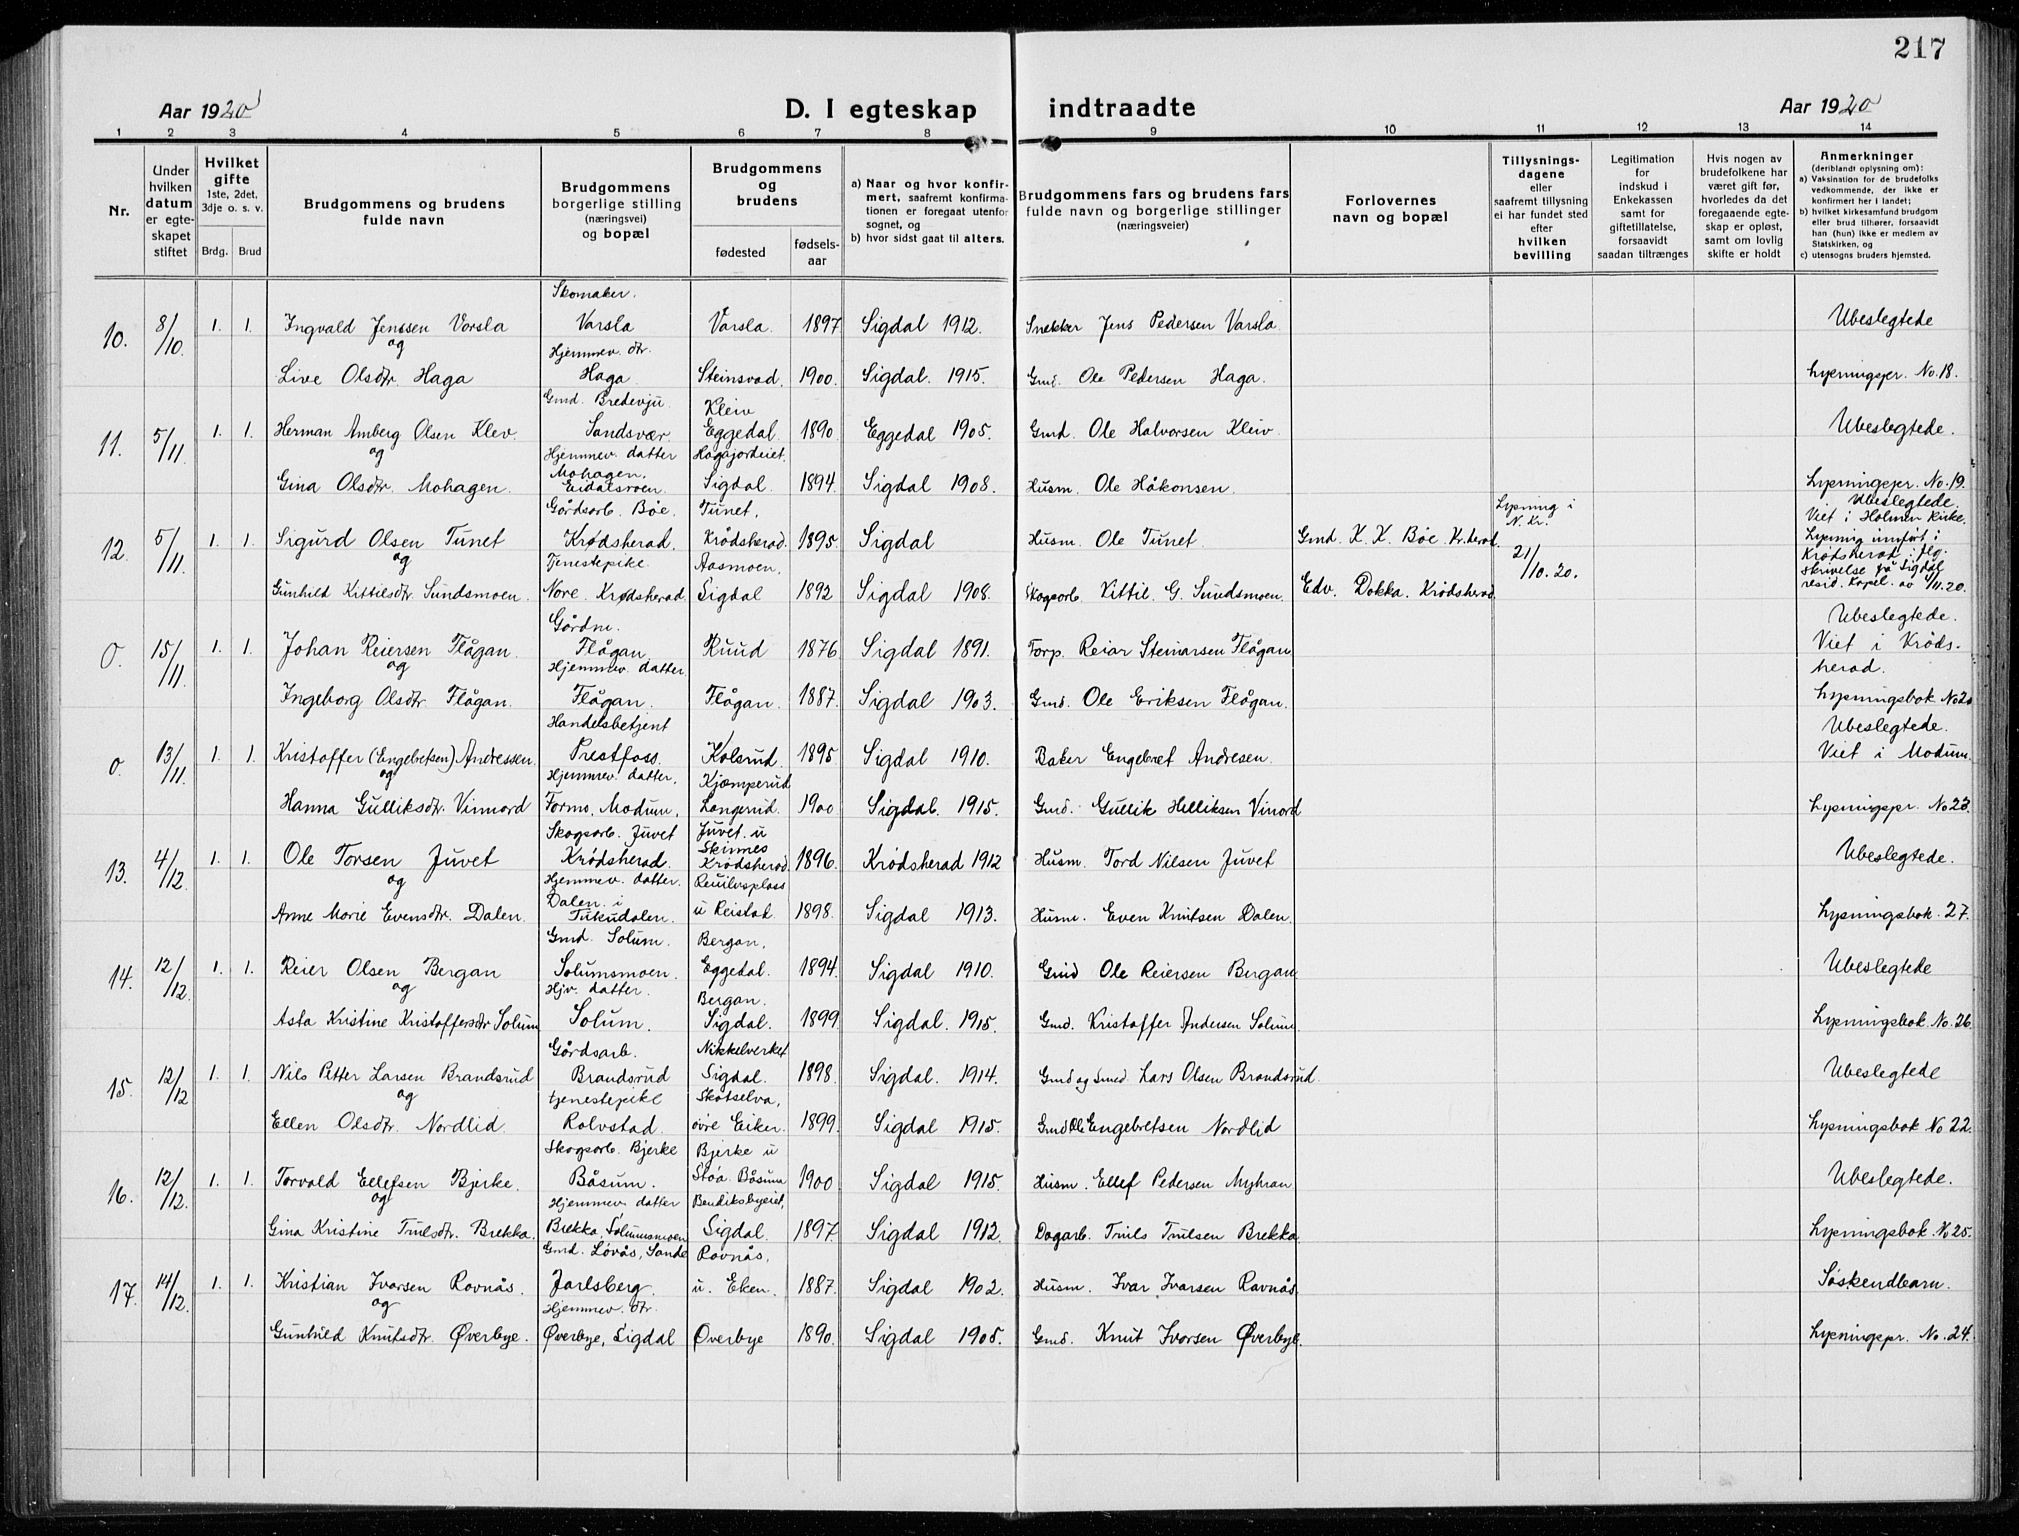 217
Aar 1920
D. I egteskap indtraadte
Aar 1920
1 2 3 4 5 6 7 8 9 10 11 12 13 14
Nr.
Under hvilken datum er egteskapet stiftet
Hvilket gifte 1ste, 2det, 3dje o. s. v.
Brdg. Brud
Brudgommens og brudens fulde navn
Brudgommens borgerlige stilling (næringsvei) og bopæl
Brudgommens og brudens
fødested
fødselsaar
a) Naar og hvor konfirmert, saafremt konfirmationen er foregaat utenfor sognet, og
b) hvor sidst gaat til alters.
Brudgommens fars og brudens fars fulde navn og borgerlige stillinger (næringsveier)
Forlovernes navn og bopæl
Tillysningsdagene eller saafremt tillysning ei har fundet sted efter hvilken bevilling
Legitimation for indskud i Enkekassen samt for giftetillatelse, forsaavidt saadan tiltrænges
Hvis nogen av brudefolkene har været gift før, hvorledes da det foregaaende egteskap er opløst, samt om lovlig skifte er holdt
Anmerkninger (deriblandt oplysning om):
a) Vaksination for de brudefolks vedkommende, der ikke er konfirmert her i landet;
b) hvilket kirkesamfund brudgom eller brud tilhører, forsaavidt han (hun) ikke er medlem av Statskirken, og
c) utensogns bruders hjemsted.
10. 8/10 1. 1. Ingvald Jenssen Vorsla Skomaker. Varsla Varsla. 1897 Sigdal 1912. Snekker Jens Pedersen Varsla Ubeslegtede
og
Live Olsdtr. Haga Hjemmev. dtr. Haga Steinsvad. 1900. Sigdal. 1915. Gmd. Ole Pedersen Haga. Lysningspr. No. 18.
11. 5/11. 1. 1. Herman Amberg Olsen Klev. Gmd. Bredevju Sandsvær. Kleiv Eggedal. 1890. Eggedal 1905. Gmd. Ole Halvorsen Kleiv. Ubeslegtede.
og
Gina Olsdtr. Mohagen. Hjemmev. datter Mohagen, Eidalsroen. Hagajordeiet. Sigdal. 1894. Sigdal 1908. Husm. Ole Håkonsen. Lysningspr. No. 19.
12. 5/11. 1. 1. Sigurd Olsen Tunet Gårdsarb. Bøe. Krødsherad. Tunet, Krødsherad. 1895. Sigdal Husm. Ole Tunet Gmd. K. K. Bøe. Kr.herad. Lysning i N. Kr. 21/10. 20. Ubeslegtede. Viet i Holmen kirke.
og
Gunhild Kittilsdtr. Sundsmoen. Tjenestepike Nore. Krødsherad Aasmoen, Sigdal 1892 Sigdal 1908. Skogsarb. Kittil. G. Sundsmoen. Edv. Dokka. Krødsherad. Lysning utført i Krødsherad iflg. skrivelse fra Sigdal resid. Kapel. av 1/11.20.
0. 15/11 1. 1. Johan Reiersen Flågan. Gårdm. Flågan. Ruud 1876 Sigdal 1891. Forp. Reiar Steinarsen Flågan Ubeslegtede. Viet i Krødsherad.
og
Ingeborg Olsdtr. Flågan. Hjemmev. datter Flågan. Flågan. 1887. Sigdal 1903. Gmd. Ole Eriksen Flågan. Lysningsbok No 20
0. 13/11. 1. 1. Kristoffer (Engebretsen) Andressen. Handelsbetjent Prestfoss. Kolsrud. 1895 Sigdal 1910. Baker Engebret Andresen. Ubeslegtede. Viet i Modum.
og
Hanna Gulliksdtr. Vinnord Hjemmev. datter, Formo, Modum, Kjæmperud Langerud. 1900 Sigdal. 1915. Gmd. Gullik Helliksen Vinord Lysningspr. No 23.
13. 4/12. 1. 1. Ole Torsen Juvet Skogsarb. Juvet Krødsherad. Juvet u Skinnes Krødsherad. 1896. Krødsherad 1912 Husm. Tord Nilsen Juvet Ubeslegtede.
og
Anne Marie Evensdtr. Dalen. Hjemmev. datter. Dalen i Tukudalen. u Reistad 1898. Sigdal 1913. Husm. Even Knutsen Dalen. Lysningsbok. 27.
14. 12/12. 1. 1. Reier Olsen Bergan Gmd. Solum. Solumsmoen. Bergan, Eggedal. 1894. Sigdal 1910. Gmd Ole Reiersen Bergan Ubeslegtede
og
Asta Kristine Kristoffersdtr Solum Hjv. datter. Solum. Bergan. Sigdal. 1899. Sigdal. 1915. Gmd. Kristoffer Andersen Solum Lysningsbok. No. 26.
15. 12/12 1. 1. Nils Petter Larsen Brandsrud Gårdsarb. Brandsrud Nikkelverket Sigdal. 1898. Sigdal. 1914. Gmd og Smed Lars Olsen Brandsrud. Ubeslegtede
og
Ellen Olsdtr. Nordlid tjenestepike Rolvstad. Skotselva, øvre Eiker. 1899. Sigdal 1915. Gmd Ole Engebretsen Nordlid Lysningsbok No 22.
16. 12/12. 1. 1. Torvald Ellefsen Bjerke. Skogsarb. Bjerke Båsum. Bjerke u Støa. Båsum 1900 Sigdal 1915. Husm. Ellef Pedersen Myhran Ubeslegtede.
og
Gina Kristine Trulsdtr. Brekka. Hjemmev. datter Brekka, Solumsmoen Bendiksbyeiet, Sigdal. 1897. Sigdal 1912. Dagarb. Truls Trulsen Brekka. Lysningsbok. No 25.
17. 14/12. 1. 1. Kristian Ivarsen Ravnås. Gmd. Løvås, Sande Jarlsberg. Ravnås, u. Eken. 1887. Sigdal 1902. Husm. Ivar Ivarsen Ravnås. Søskendbarn.
og
Gunhild Knutsdtr. Øverbye. Hjemmev. dtr. Øverbye, Sigdal Øverbye 1890. Sigdal 1905. Gmd. Knut Ivarsen Øverbye. Lysningspr. No. 24.